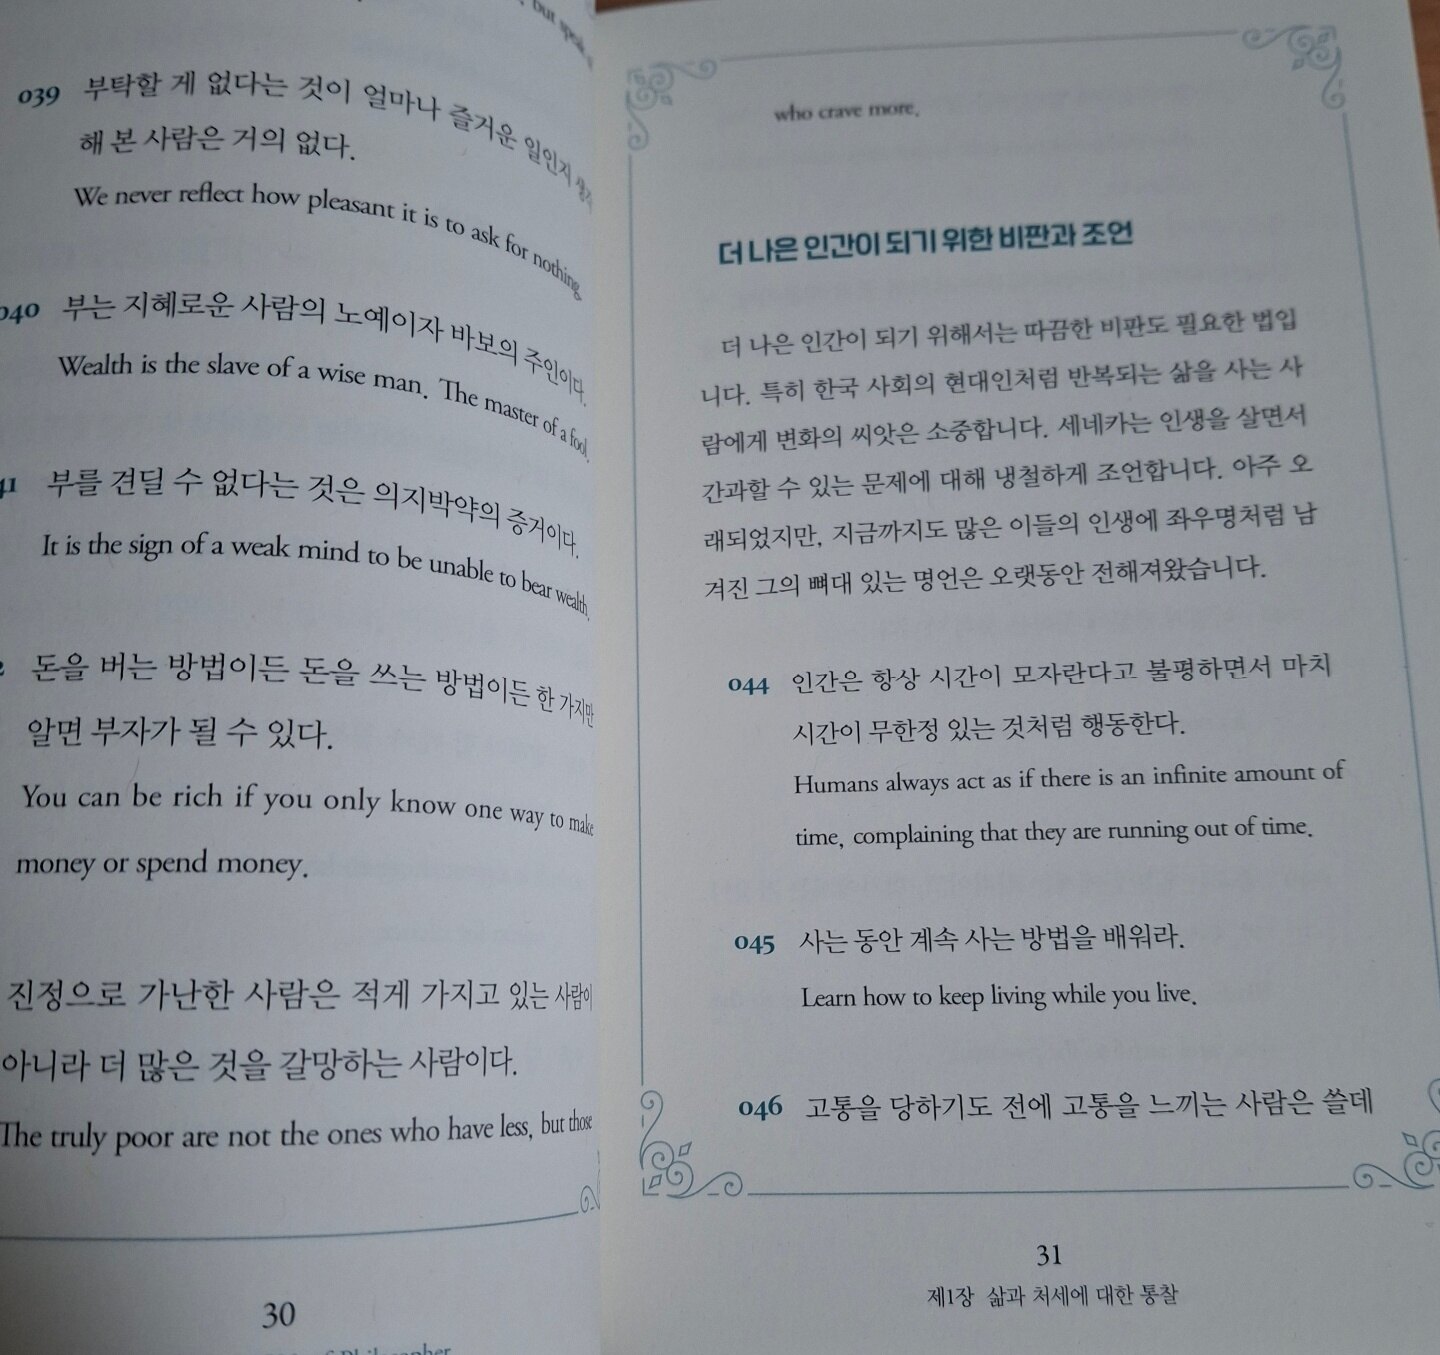 but speak
039 부탁할 게 없다는 것이 얼마나 즐거운 일인지 생각
해 본 사람은 거의 없다.
We never reflect how pleasant it is to ask for nothing.
040 부는 지혜로운 사람의 노예이자 바보의 주인이다.
Wealth is the slave of a wise man. The master of a fool.
41 부를 견딜 수 없다는 것은 의지박약의 증거이다.
It is the sign of a weak mind to be unable to bear wealth.
2 돈을 버는 방법이든 돈을 쓰는 방법이든 한 가지만
알면 부자가 될 수 있다.
You can be rich if you only know one way to make
money or spend money.
진정으로 가난한 사람은 적게 가지고 있는 사람이
아니라 더 많은 것을 갈망하는 사람이다.
The truly poor are not the ones who have less, but those
30
of Philosopher
who crave more.
더 나은 인간이 되기 위한 비판과 조언
더 나은 인간이 되기 위해서는 따끔한 비판도 필요한 법입
니다. 특히 한국 사회의 현대인처럼 반복되는 삶을 사는 사
람에게 변화의 씨앗은 소중합니다. 세네카는 인생을 살면서
간과할 수 있는 문제에 대해 냉철하게 조언합니다. 아주 오
래되었지만, 지금까지도 많은 이들의 인생에 좌우명처럼 남
겨진 그의 뼈대 있는 명언은 오랫동안 전해져왔습니다.
044 인간은 항상 시간이 모자란다고 불평하면서 마치
시간이 무한정 있는 것처럼 행동한다.
Humans always act as if there is an infinite amount of
time, complaining that they are running out of time.
045 사는 동안 계속 사는 방법을 배워라.
Learn how to keep living while you live.
046 고통을 당하기도 전에 고통을 느끼는 사람은 쓸데
31
제1장 삶과 처세에 대한 통찰